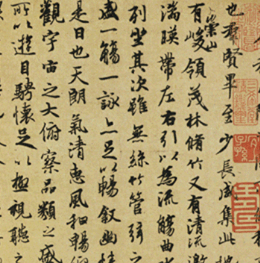 也羣賢畢至少長咸集此地
有崇山峻領茂林脩竹又有清流激
湍暎帶左右引以為流觴曲水
列坐其次雖無絲竹管弦之
盛一觴一詠亦足以暢敘幽情
是日也天朗氣清惠風和暢仰
觀宇宙之大俯察品類之盛
所以遊目騁懷足以極視聽之